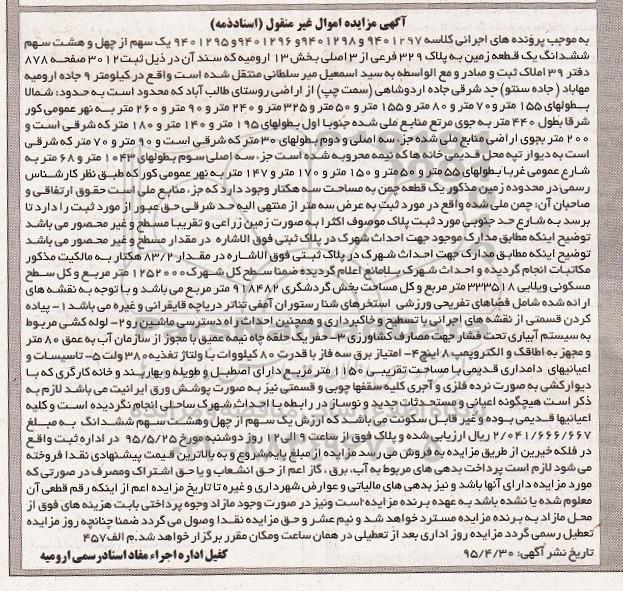 آگهی مزایده اموال غیر منقول (اسنادذمه)
به موجب پرونده های اجرائی کلاسه ۹۴۰۱۲۹۷ و ۹۴۰۱۲۹۸و ۹۴۰۱۲۹۶ و ۹۴۰۱۲۹۵ یک سهم از چهل و هشت سهم
ششدانگ یک قطعه زمین به پلاک ۳۲۹ فرعی از ۳ اصلی بخش ۱۳ ارومیه که سند آن در ذیل ثبت ۳۰۱۲ صفحه ۸۷۸
دفتر ۳۹ املاک ثبت و صادر و مع الواسطه به سید اسمعیل میر سلطانی منتقل شده است واقع در کیلومتر ۹ جاده ارومیه
مهاباد ( جاده سنتو) حد شرقی جاده اردوشاهی (سمت چپ) از اراضی روستای طالب آباد که محدود است به حدود: شمالا
بطولهای ۱۵۵ متر و ۷۰ متر و ۸۰ متر و ۱۵۵ متر و ۵۰ متر و ۳۲۵ متر و ۲۴۰ متر و ۹۰ متر و ۲۶۰ متر به نهر عمومی کور
شرقا بطول ۴۴۰ متر به جوی مرتع منابع ملی شده جنوبا اول بطولهای ۱۹۵ متر و ۱۴۰ متر و ۱۸۰ متر که شرقی است و
۲۰۰ متر بجوی اراضی منابع ملی شده جزء سه اصلی و دوم بطولهای ۳۰ متر که شرقی است و ۹۰ متر و ۷۰ متر که شرقی
است به دیوار تپه محل قدیمی خانه ها که نیمه مخروبه شده است جزء سه اصلی سوم بطولهای ۱۰۴۳ متر و ۶۸ متر به
شارع عمومی غربا بطولهای ۵۵ متر و ۵۰ متر و ۱۵۰ متر و ۱۷۰ متر و ۱۴۷ متر به نهر عمومی کور که طبق نظر کارشناس
رسمی در محدوده زمین مذکور یک قطعه چمن به مساحت سه هکتار وجود دارد که جزء منابع ملی است حقوق ارتفاقی و
صاحبان آن: چمن ملی شده واقع در مورد ثبت به عرض سه متر از منتهی الیه حد شرقی حق عبور از مورد ثبت را دارد تا
برسد به شارع حد جنوبی مورد ثبت پلاک موصوف اکثرا به صورت زمین زراعی و تقریبا مسطح و غیر محصور می باشد
توضیح اینکه مطابق مدارک موجود جهت احداث شهرک در پلاک ثبتی فوق الاشاره در مقدار مسطح و غیر محصور می باشد
توضیح اینکه مطابق مدارک جهت احداث شهرک در پلاک ثبتی فوق الاشاره در مقدار ۸۳/۲ هکتار به مالکیت مذکور
مکاتبات انجام گردیده و احداث شهرک بلامانع اعلام گردیده ضمنا سطح کل شهرک ۱۲۵۲۰۰۰ متر مربع و کل سطح
مسکونی ویلایی ۳۳۳۵۱۸ متر مربع و کل مساحت بخش گردشگری ۹۱۸۴۸۲ متر مربع می باشد و با توجه به نقشه های
ارائه شده شامل فضاهای تفریحی ورزشی استخرهای شنا رستوران آمفی تئاتر دریاچه قایقرانی و غیره می باشد ۱- پیاده
کردن قسمتی از نقشه های اجرائی با تسطیح و خاکبرداری و همچنین احداث راه دسترسی ماشین رو ۲- لوله کشی مربوط
به سیستم آبیاری تحت فشار جهت مصارف کشاورزی ۳- حفر یک حلقه چاه نیمه عمیق با مجوز از سازمان آب به عمق ۸۰ متر
و مجهز به اطاقک و الکتروپمپ ۸ اینچ ۴- امتیاز برق سه فاز با قدرت ۸۰ کیلووات با ولتاژ تغذیه ۳۸۰ ولت ۵- تاسیسات و
اعیانیهای دامداری قدیمی با مساحت تقریبی ۱۱۵۰ متر مربع دارای اصطبل و طویله و بهاربند و خانه کارگری که با
دیوارکشی به صورت نرده فلزی و آجری کلیه سقفها چوبی و قسمتی نیز به صورت پوشش ورق ایرانیت می باشد لازم به
ذکر است هیچگونه اعیانی و مستحدثات جدید و نوساز در رابطه با احداث شهرک ساحلی انجام نگردیده است و کلیه
اعیانیها قدیمی بوده و غیر قابل سکونت می باشد که ارزش یک سهم از چهل وهشت سهم ششدانگ به مبلغ
۲/۰۴۱/۶۶۶/۶۶۷ ریال ارزیابی شده و پلاک فوق از ساعت ۹ الی ۱۲ روز دوشنبه مورخ ۹۵/۵/۲۵ در اداره ثبت واقع
در فلکه خیرین از طریق مزایده به فروش می رسد مزایده از مبلغ پایه شروع و به بالاترین قیمت پیشنهادی نقدا فروخته
می شود لازم است پرداخت بدهی های مربوط به آب، برق، گاز اعم از حق انشعاب و یا حق اشتراک ومصرف در صورتی که
مورد مزایده دارای آنها باشد و نیز بدهی های مالیاتی و عوارض شهرداری و غیره تا تاریخ مزایده اعم از اینکه رقم قطعی آن
معلوم شده یا نشده باشد به عهده برنده مزایده است ونیز در صورت وجود مازاد وجوه پرداختی بابت هزینه های فوق از
محل مازاد به برنده مزایده مسترد خواهد شد و نیم عشر و حق مزایده نقدا وصول می گردد ضمنا چنانچه روز مزایده
تعطیل رسمی گردد مزایده روز اداری بعد از تعطیلی در همان ساعت ومکان مقرر برگزار خواهد شد.م الف۴۵۷
تاریخ نشر آگهی: ۹۵/۴/۳۰ کفیل اداره اجراء مفاد اسنادرسمی ارومیه